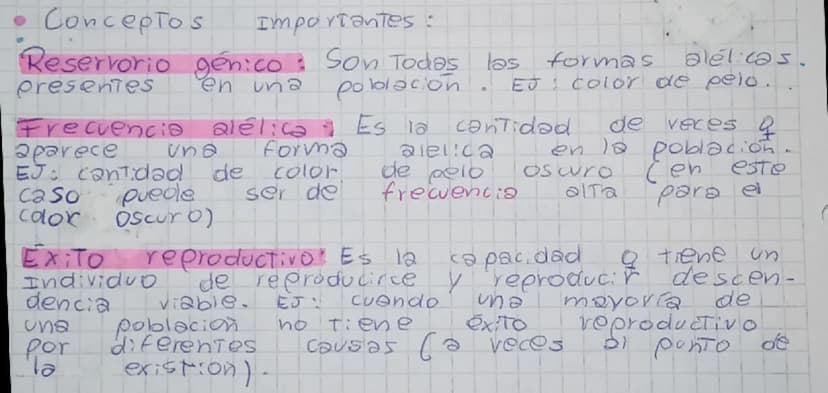 • Conceptos importantes:
Reservorio génico: Son todas las formas alélicas.
presentes en una población. EJ: color de pelo..
Frecuencia alélica: Es la cantidad de veces q
aparece una forma alelica en la población.
EJ: cantidad de color de pelo oscuro (en este
caso puede ser de frecuencia alta para el
color oscuro)
Éxito reproductivo: Es la capacidad q tiene un
Individuo de reproducirce y reproducir descen-
dencia viable. EJ: cuando una mayoría de
una población no tiene éxito reproductivo
por diferentes causas (a veces al punto de
la existion).